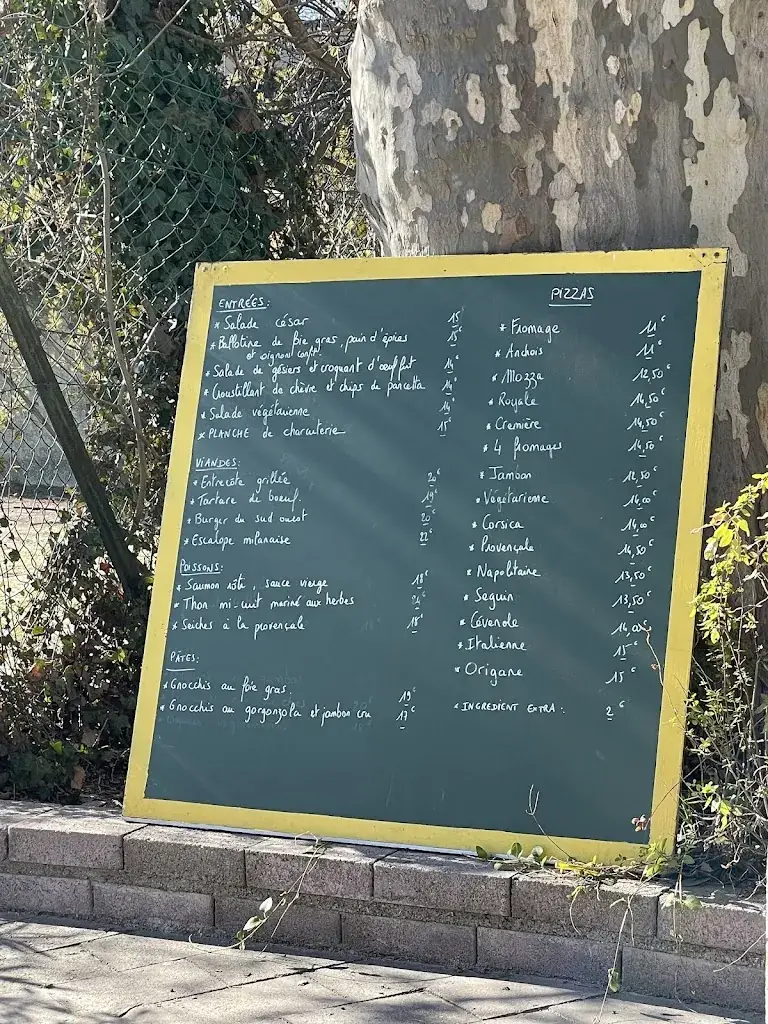 ENTRÉES:
* Salade césar 15€
* Ballotine de foie gras, pain d'épices 15€
et oignons confit
* Salade de gésiers et croquant d'œuf frit 14€
* Croustillant de chèvre et chips de pancetta 14€
* Salade végétarienne 14€
* PLANCHE de charcuterie 15€
VIANDES:
* Entrecôte grillée 20€
* Tartare de boeuf. 19€
* Burger du sud ouest 20€
* Escalope milanaise 22€
POISSONS:
* Saumon rôti, sauce vierge 18€
* Thon mi-cuit mariné aux herbes
* Seiches à la provençale 18€
PÂTES:
* Gnocchis au foie gras. 19€
* Gnocchis au gorgonzola et jambon cru 17€
PIZZAS
* Fromage 11€
* Anchois 11€
* Mozza 12,50€
* Royale 14,50€
* Cremière 14,50€
* 4 fromages 14,50€
* Jambon 12,50€
* Végétarienne 14,00€
* Corsica 14,00€
* Provençale 14,50€
* Napolitaine 13,50€
* Seguin 13,50€
* Cévenole 14,00€
* Italienne 15€
* Origane 15€
* INGREDIENT EXTRA: 2€